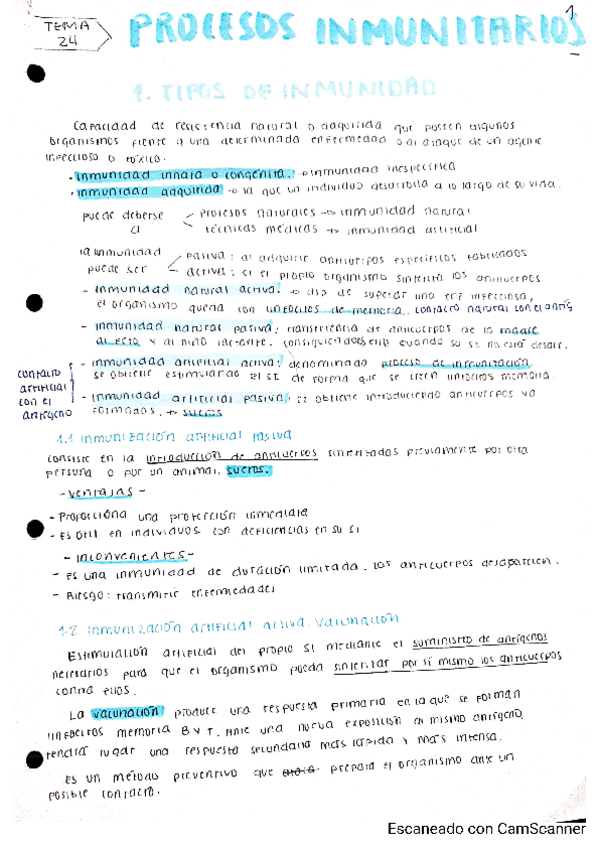 TEMA 24
PROCESOS INMUNITARIOS
1
1. TIPOS DE INMUNIDAD
Capacidad de resistencia natural o adquirida que poseen algunos
organismos frente a una determinada enfermedad o al ataque de un agente
infeccioso o tóxico.
- Inmunidad innata o congénita. → inmunidad inespecífica
- Inmunidad adquirida → la que un individuo desarrolla a lo largo de su vida.
puede deberse a
Procesos naturales → inmunidad natural
técnicas médicas → inmunidad artificial
la inmunidad puede ser
Pasiva: al adquirir anticuerpos específicos fabricados
activa: si el propio organismo sintetiza los anticuerpos
- Inmunidad natural activa: → dsp de superar una enf infecciosa,
el organismo queda con linfocitos de memoria. contacto natural con el antíg
- Inmunidad natural pasiva: transferencia de anticuerpos de la madre
al feto y al niño lactante. cuando su si no está desarr.
contacto artificial con el antígeno
- Inmunidad artificial activa: denominado proceso de inmunización
se obtiene estimulando el si de forma que se creen linfocitos memoria.
- Inmunidad artificial pasiva: se obtiene introduciendo anticuerpos ya
formados. → sueros
1.1 Inmunización artificial pasiva
Consiste en la introducción de anticuerpos sintetizados previamente por otra
persona o por un animal. sueros.
- ventajas -
- Proporciona una protección inmediata
- Es útil en individuos con deficiencias en su si
- Inconvenientes -
- Es una inmunidad de duración limitada. los anticuerpos desaparecen.
- Riesgo: transmitir enfermedades
1.2 Inmunización artificial activa. Vacunación
Estimulación artificial del propio si mediante el suministro de antígenos
necesarios para que el organismo pueda sintetizar por sí mismo los anticuerpos
contra ellos.
La vacunación produce una respuesta primaria en la que se forman
linfocitos memoria B y T. Ante una nueva exposición al mismo antígeno,
tendrá lugar una respuesta secundaria más rápida y más intensa.
Es un método preventivo que prepara el organismo ante un
posible contacto.
Escaneado con CamScanner